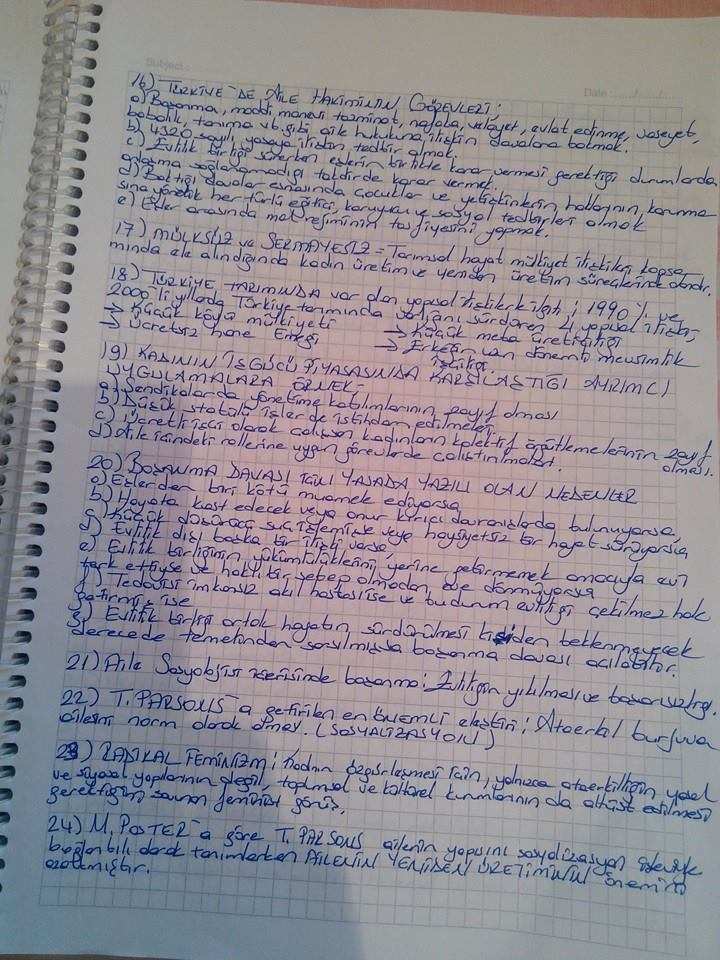 Subject :
Date : ..../..../....
16) TÜRKİYE'DE AİLE HAKİMİNİN GÖREVLERİ :
a) Boşanma, maddi manevi tazminat, nafaka, velayet, evlat edinme, vasayet,
babalık, tanıma vb. gibi aile hukukuna ilişkin davalara bakmak.
b) 4320 sayılı yasaya ilişkin tedbir almak.
c) Evlilik birliği sürerken eşlerin birlikte karar vermesi gerektiği durumlarda
anlaşma sağlanamadığı takdirde karar vermek.
d) Baktığı davalar esnasında çocuklar ve yetişkinlerin haklarının, korunma
sına yönelik her türlü eğitici, koruyucu ve sosyal tedbirleri almak
e) Eşler arasında mal rejiminin tasfiyesini yapmak.
17) MÜLKSÜZ ve SERMAYESİZ = Tarımsal hayat mülkiyet ilişkileri kapsa
mında ele alındığında kadın üretim ve yeniden üretim süreçlerinde
18) TÜRKİYE TARIMINDA var olan yapısal ilişkilerle ilgili ; 1990'lı ve
2000'li yıllarda Türkiye tarımında varlığını sürdüren 4 yapısal ilişki;
→ Küçük köylü mülkiyeti → Küçük meta üreticiliği
→ Ücretsiz hane Emeği → Erkeğin yarı dönemli mevsimlik
işçiliği.
19) KADININ İŞGÜCÜ PİYASASINDA KARŞILAŞTIĞI AYRIMCI
UYGULAMALARA ÖRNEK -
a) Sendikalarda yönetime katılımlarının zayıf olması
b) Düşük statülü işlerde istihdam edilmeleri
c) Ücretli işçi olarak çalışan kadınların kolektif örgütlemelerinin zayıf
olması.
d) Aile içindeki rollerine uygun görevlerde çalıştırılmaları.
20) BOŞANMA DAVASI İÇİN YASADA YAZILI OLAN NEDENLER
a) Eşlerden biri kötü muamele ediyorsa,
b) Hayata kast edecek veya onur kırıcı davranışlarda bulunuyorsa,
c) Küçük düşürücü suç işlemişse veya haysiyetsiz bir hayat sürüyorsa
d) Evlilik dışı başka bir ilişki varsa,
e) Evlilik birliğinin yükümlülüklerini yerine getirmemek amacıyla evi
terk ettiyse ve haklı bir sebep olmadan eve dönmüyorsa
f) Tedavisi imkansız akıl hastası ise ve bu durum evliliği çekilmez hale
getirmiş ise
g) Evlilik birliği ortak hayatın sürdürülmesi kişiden beklenmeyecek
derecede temelinden sarsılmışsa boşanma davası açılabilir.
21) Aile Sosyolojisi içerisinde boşanma : Evliliğin yıkılması ve başarısızlığı.
22) T. PARSONS'a getirilen en önemli eleştiri ; Ataerkil burjuva
ailesini norm olarak alması. (SOSYALİZASYON)
23) RADİKAL FEMİNİZM ; Kadının özgürleşmesi için, yalnızca ataerkilliğin yasal
ve siyasal yapılarının değil, toplumsal ve kültürel kurumlarının da altüst edilmesi
gerektiğini savunan feminist görüş.
24) M. POSTER'a göre T. PARSONS ailenin yapısını sosyalizasyon işleviyle
bağlantılı olarak tanımlarken AİLENİN YENİDEN ÜRETİMİNİN önemini
azaltmıştır.